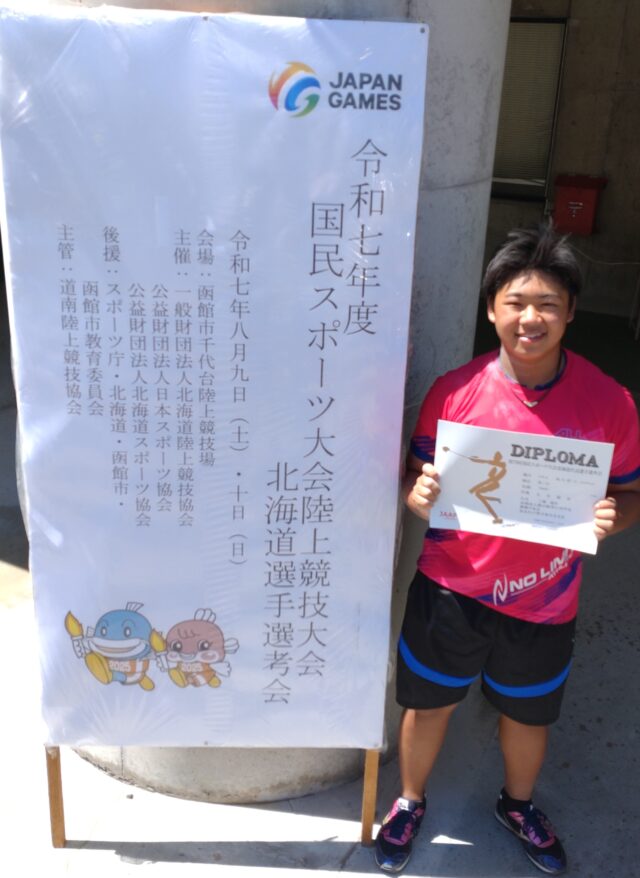 JAPAN
GAMES
令和七年度
国民スポーツ大会陸上競技大会
北海道選手選考会
令和七年八月九日（土）・十日（日）
会場：函館市千代台陸上競技場
主催：一般財団法人北海道陸上競技協会
公益財団法人日本スポーツ協会
公益財団法人北海道スポーツ協会
後援：スポーツ庁・北海道・函館市・
函館市教育委員会
主管：道南陸上競技協会
2025
2025
DIPLOMA
NO LIM